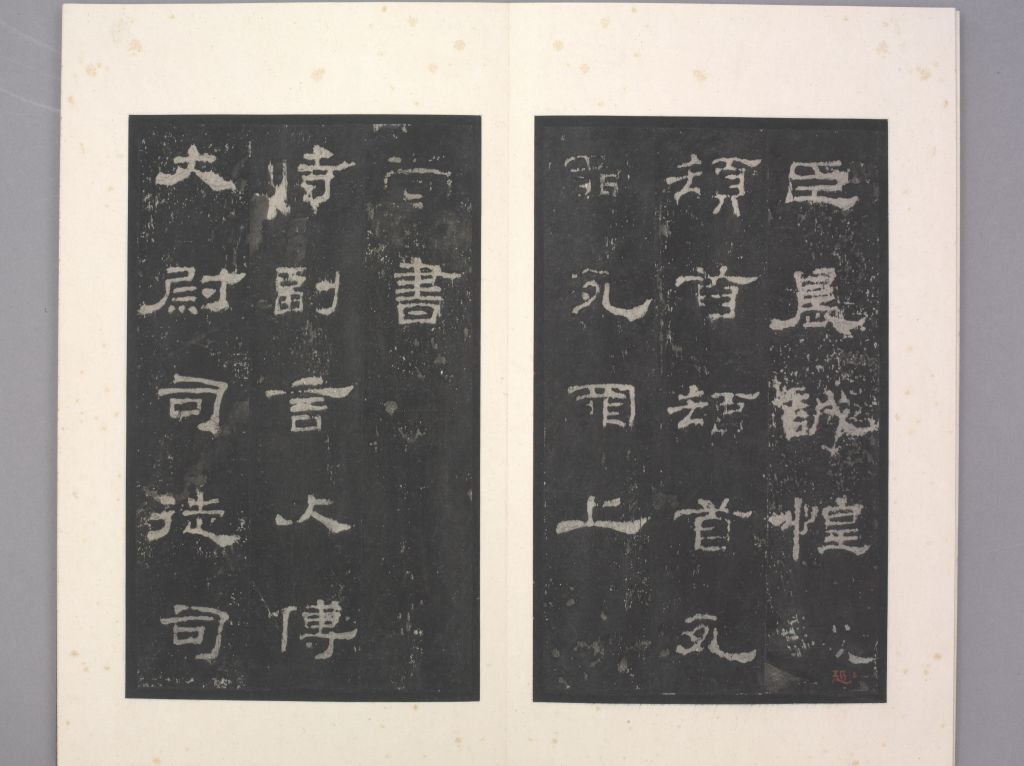 臣晨誠惶恐
頓首頓首死
罪死罪上
尚書
時副言大傅
大尉司徒司